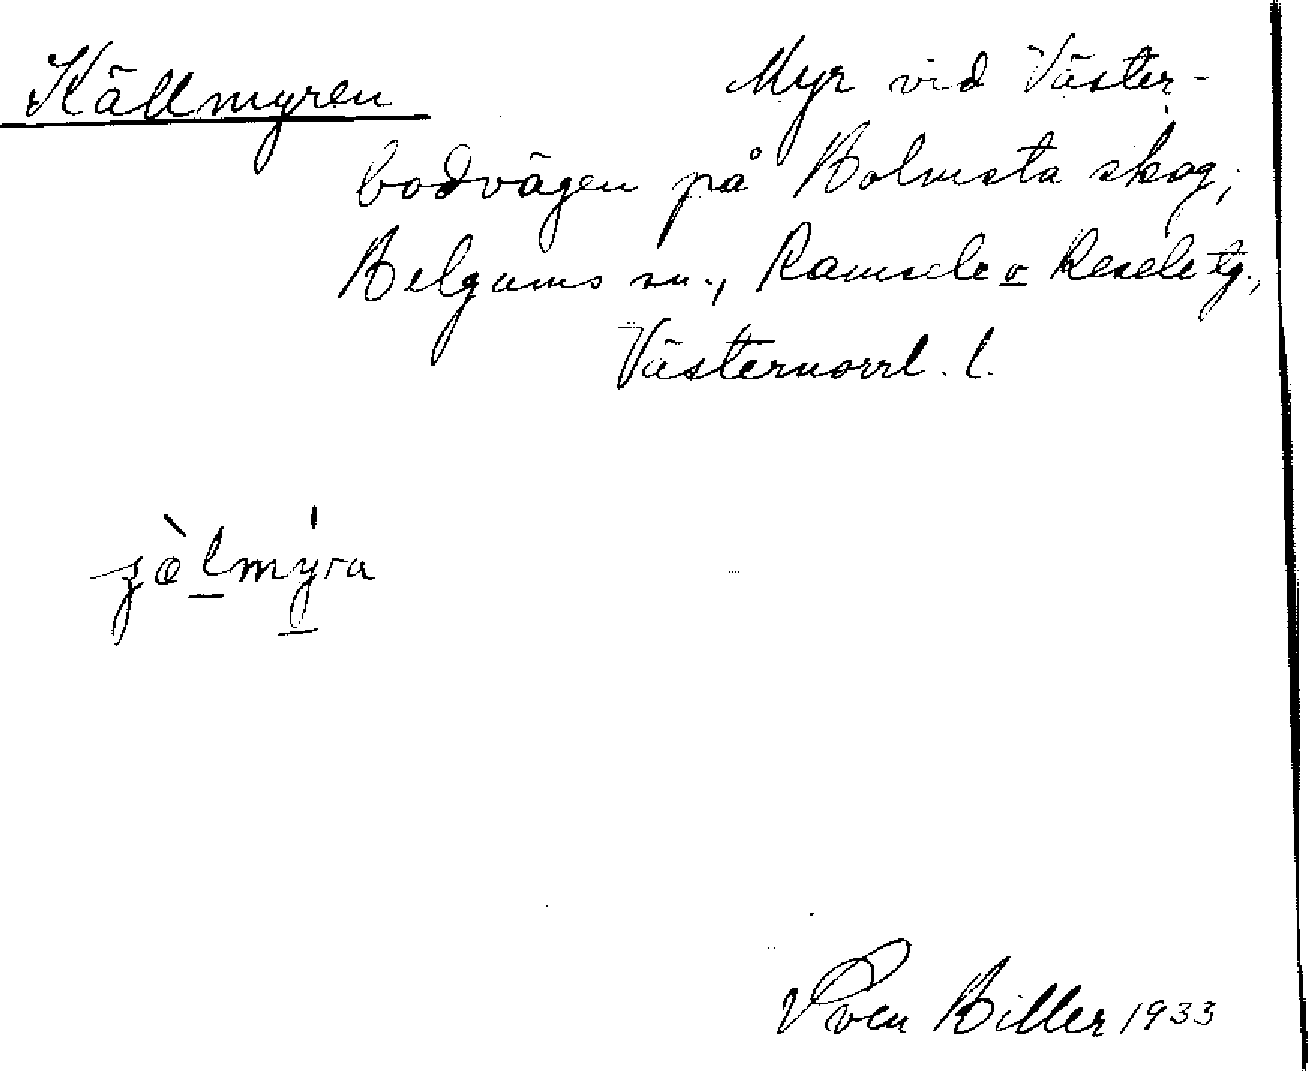 Källmyren
Myr vid Väster-
bodvägen på Bolmsta skog,
Helgums sn., Ramsele o Resele tg.,
Västernorrl. l.
Sven Biller 1933